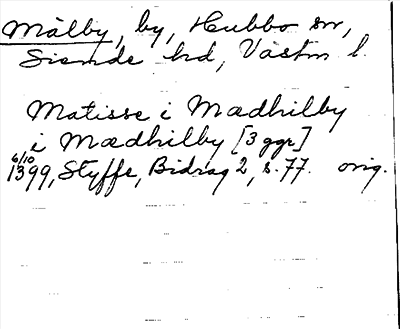 Målby, by, Hubbo sn,
Siende hd, Västm l.
Matisse i Mædhilby
i Mædhilby [3 ggr]
6/10 1399, Styffe, Bidrag 2, s. 77. orig.